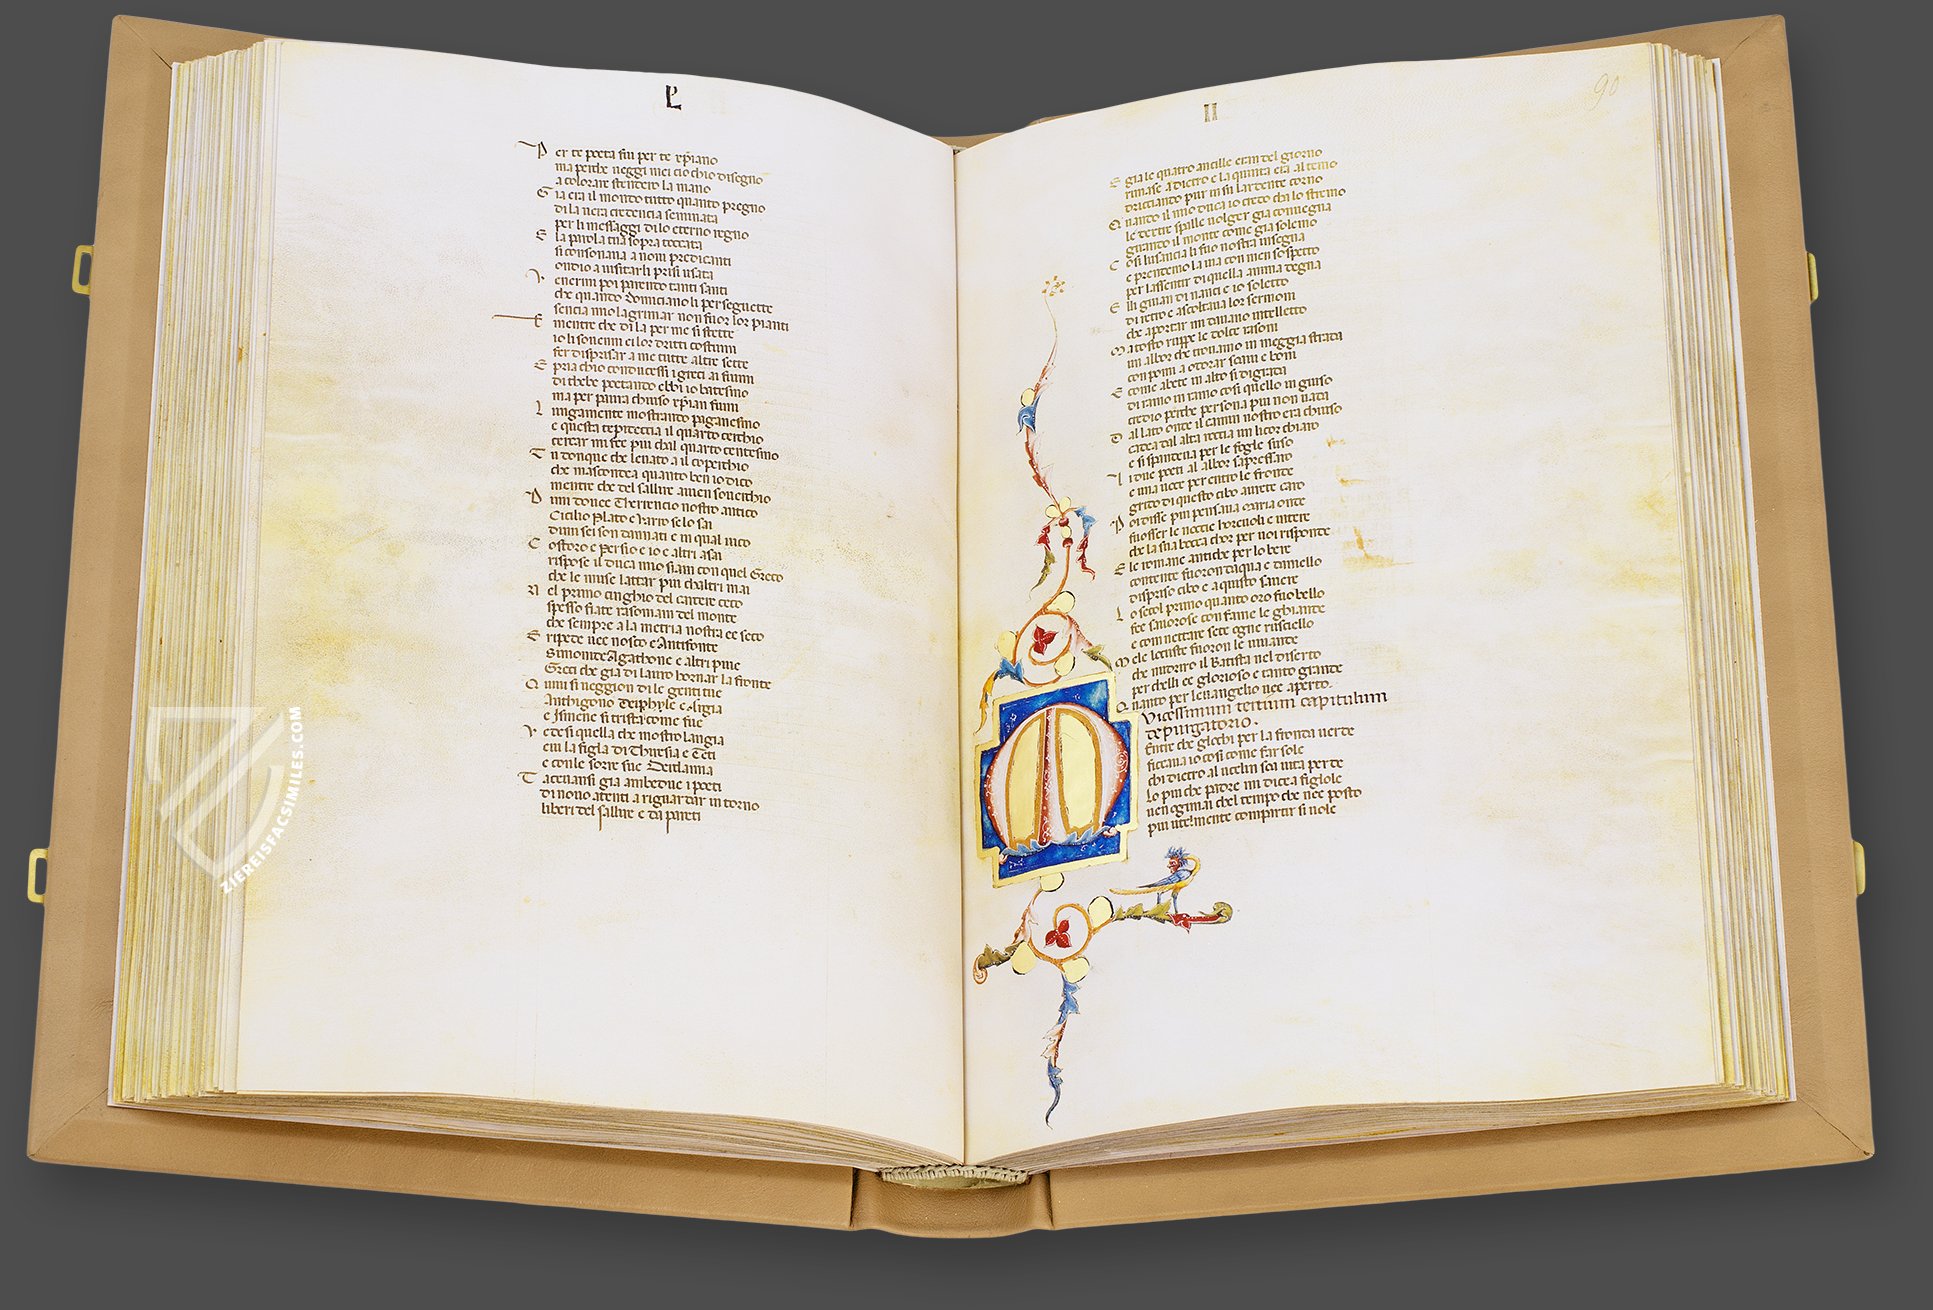 II
90
Per te poeta fui per te xp̄iano
ma perche ueggi mei cio chio disegno
a colorare stendero la mano
Gia era il mondo tutto quanto pregno
di la uera credencia seminata
per li messaggi di lo eterno regno
E la parola tua sopra toccata
si consonaua a noui predicanti
ondio a uisitarli prisi usata
Venermi poi parendo tanti santi
che quando Domiciano li perseguette
sencia mio lagrimar non fuor lor pianti
E mentre che di la per me si stette
io li souenni ei lor dritti costumi
fer disprisar a me tutte altre sette
E pria chio conducessi i greci ai fiumi
di thebe poetando ebbi io batesmo
ma per paura chiuso xp̄ian fiumi
Lungamente mostrando paganesmo
e questa tepideccia il quarto cerchio
cercar mi fee piu chal quarto centesmo
Tu donque che leuato ai il coperchio
che mascondea quanto ben io dico
mentre che del sallire auen souerchio
Dimi doue Therrencio nostro antico
Cicilio Plato e Varro se lo sai
dimi sei son dannati e in qual uico
Costoro e persio e io e altri asai
rispose il duca mio siam con quel Greco
che le muse lattar piu chaltri mai
Nel primo cinghio del carcere ceco
spesso fiate rasoniam del monte
che sempre a la nutria nostra ee seco
Eripede uee nosco e Antifonte
Simonide Agathone e altri piue
Greci che gia di lauro hornar la fronte
Quiui si ueggion di le genti tue
Anthigono Deiphyle e Aligia
e Ismene si trista come fue
Vedesi quella che mostro langia
eui la figla di Thiresia e Teti
e conle sorre sue Deidamia
Taceuansi gia ambedue i poeti
di nouo atenti a riguardar in torno
liberi del sallire e da pareti
E gia le quatro ancille eran del giorno
rimase a dietro e la quinta era al temo
dricciando pur in su lardente corno
Quando il mio duca io credo cha lo stremo
le dextre spalle uolger gia conuegna
girando il monte come gia solemo
Cosi lusancia li fuo nostra insegna
e prendemo la uia con men sospetto
per lassentir di quella anima degna
Elli giuan dinanci e io soletto
di retro e ascoltaua lor sermoni
che aportar mi dauano intelletto
Ma tosto ruppe le dolce rasoni
un albor che trouamo in meggia strada
con pomi a odorar soaui e boni
E come abete in alto si digrada
di ramo in ramo cosi quello in giuso
credio perche persona piu non uada
Dal lato onde il camin nostro era chiuso
cadea dal alta roccia un licor chiaro
e si spandeua per le fogle suso
Li due poeti al albor sapressaro
e una uoce per entro le fronde
grido di questo cibo aurete caro
Poi disse piu pensaua maria onde
fuosser le nocce horreuoli e intere
che la sua bocca chor per noi risponde
E le romane antiche per lo bere
contente fuoron daqua e daniello
dispriso cibo e aquisto sauere
Lo secol primo quanto oro fuo bello
fee sauorose con fame le ghiande
e con nettare sete ogne rusciello
Mele locuste fuoron le uiuande
che nutriro il Batista nel diserto
per chelli ee glorioso e tanto grande
Quanto per leuangelio uee aperto.
Vicessimum tertium capitulum
de purgatorio.
Mentre che glochi per la fronda uerde
ficcaua io cosi come far sole
chi dietro al ucelin soa uita perde
Lo piu che padre mi dicea figlole
uen ogimai chel tempo che nee posto
piu utelmente compartir si uole
ZIEREISFACSIMILES.COM